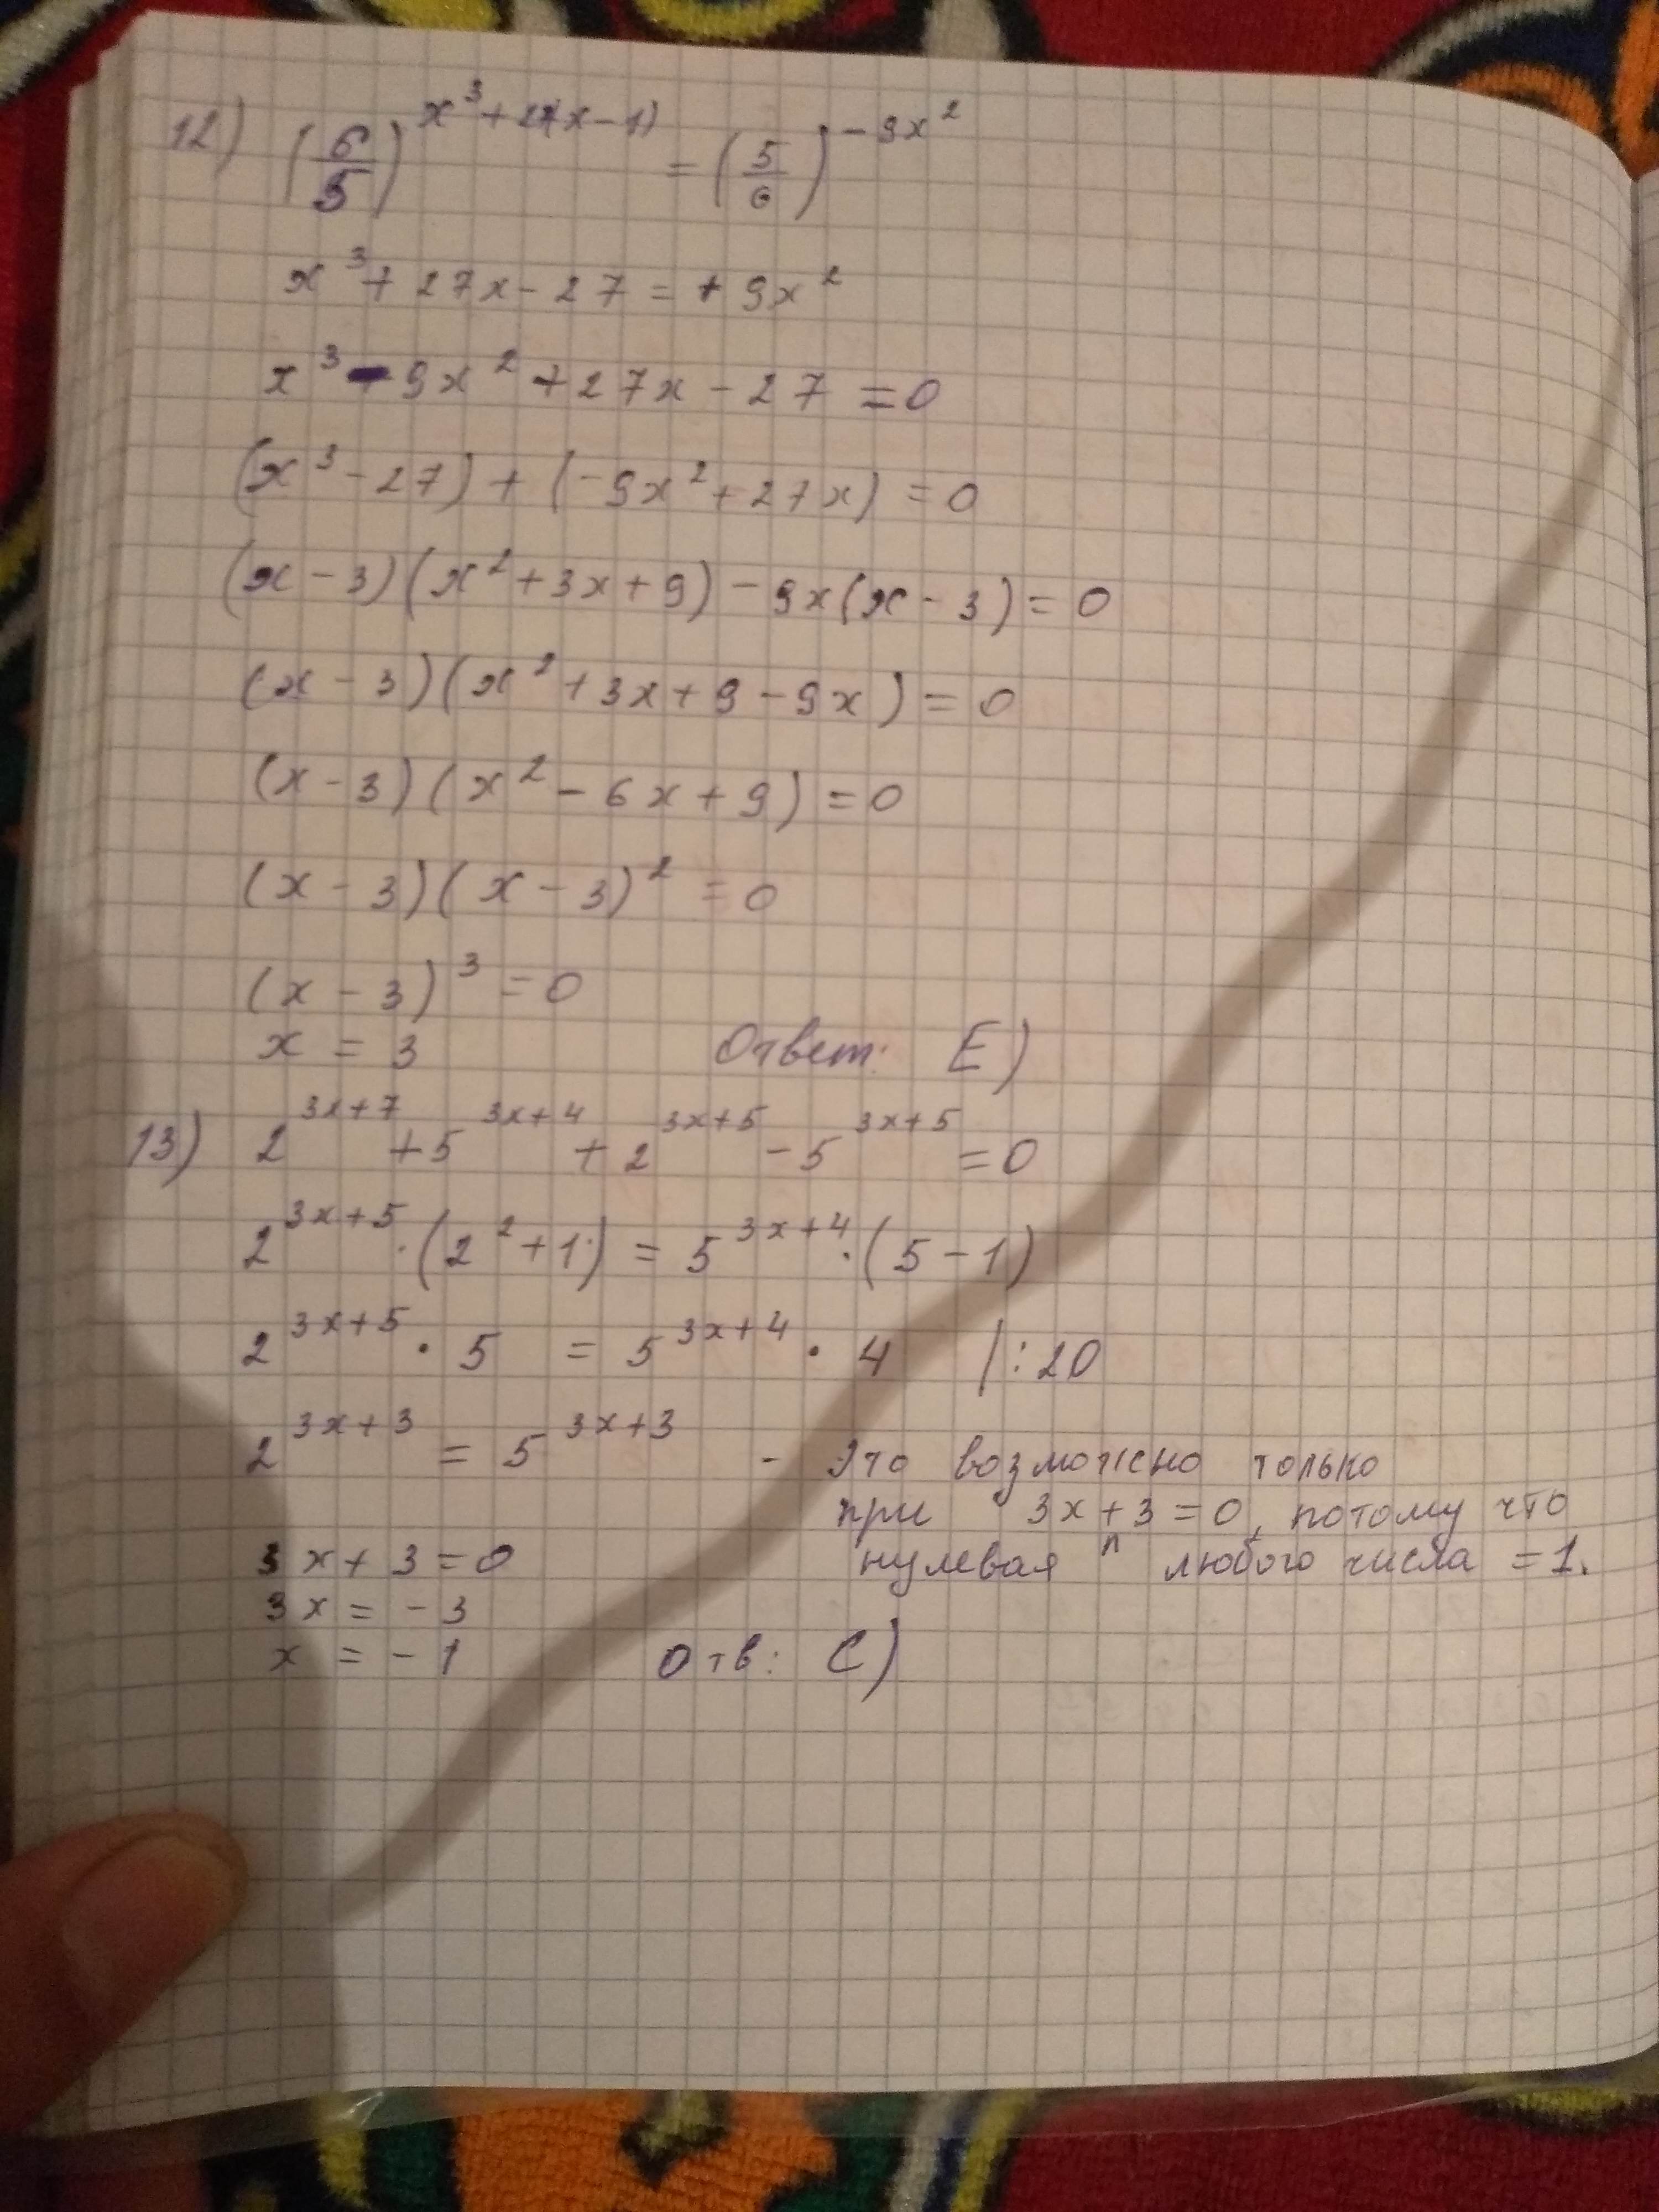 12) (6/5)^(x³+27(x-1)) = (5/6)^(-9x²)
x³ + 27x - 27 = + 9x²
x³ - 9x² + 27x - 27 = 0
(x³ - 27) + (-9x² + 27x) = 0
(x - 3)(x² + 3x + 9) - 9x(x - 3) = 0
(x - 3)(x² + 3x + 9 - 9x) = 0
(x - 3)(x² - 6x + 9) = 0
(x - 3)(x - 3)² = 0
(x - 3)³ = 0
x = 3 Ответ: E)
13) 2^(3x+7) + 5^(3x+4) + 2^(3x+5) - 5^(3x+5) = 0
2^(3x+5) · (2² + 1) = 5^(3x+4) · (5 - 1)
2^(3x+5) · 5 = 5^(3x+4) · 4 | : 20
2^(3x+3) = 5^(3x+3) - Это возможно только
при 3x + 3 = 0, потому что
3x + 3 = 0 нулевая ⁿ любого числа = 1.
3x = - 3
x = - 1 Отв: C)